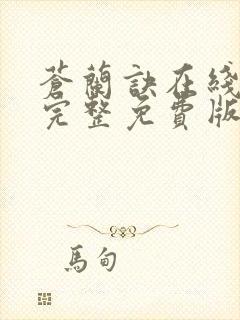 蒼蘭訣在綫
完整免費版
馬甸